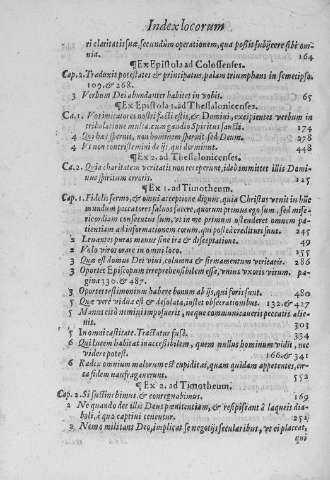 Index locorum
ri claritatis suæ, secundum operationem, qua possit subijcere sibi om-
nia. 164
¶ Ex Epistola ad Colossenses.
Cap. 2. Traduxit potestates & principatus, palam triumphans in semetipso.
109. & 268.
3 Verbum Dei abundanter habitet in vobis. 65
¶ Ex Epistola 1. ad Thessalonicenses.
Ca. 1. Vos imitatores nostri facti estis, & Domini, excipientes verbum in
tribulatione multa cum gaudio Spiritus sancti. 174
4 Qui hæc spernit, non hominem spernit sed Deum. 278
4 Vt non contristemini de ijs, qui dormiunt. 448
¶ Ex 2. ad Thessalonicenses.
Ca. 2. Quia charitatem veritatis non receperunt, ideo immittet illis Domi-
nus spiritum erroris. 125
¶ Ex 1. ad Timotheum.
Cap. 1. Fidelis sermo, & omni acceptione dignus, quia Christus venit in hunc
mundum peccatores saluos facere, quorum primus ego sum, sed mise-
ricordiam consecutus sum, vt in me primum ostenderet omnem pa-
tientiam ad informationem eorum, qui post ea credituri sunt. 245
2 Leuantes puras manus sine ira & disceptatione. 49
2 Volo viros orare in omni loco. 155
3 Quæ est domus Dei viui, columna & firmamentum veritatis. 286
3 Oportet Episcopum irreprensibilem esse, vnius vxoris virum. pa-
gina 330. & 487.
3 Oportet testimonium habere bonum ab ijs, qui foris sunt. 480
5 Quæ verè vidua est & desolata, instet obsecrationibus. 132. & 427
5 Manus citò nemini imposueris, neque communicaueris peccatis alie-
nis. 303
5 In omni castitate. Tractatus suſè. 334
6 Qui lucem habitat inaccessibilem, quem nullus hominum vidit, nec
videre potest. 166. & 341
6 Radix omnium malorum est cupiditas, quam quidam appetentes, cir-
ca fidem naufragauerunt. 552
¶ Ex 2. ad Timotheum.
Cap. 2. Si sustinebimus, & conregnabimus. 169
2 Ne quando det illis Deus pœnitentiam, & resipiscant à laqueis dia-
boli, à quo captiui tenentur. 251
2 Nemo militans Deo, implicat se negotijs secularibus, vt ei placeat,
qui